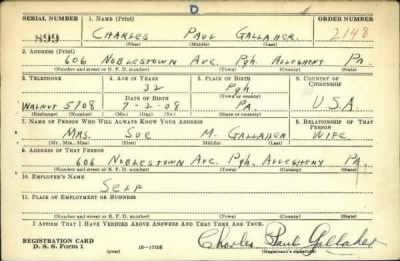 D
SERIAL NUMBER 1. NAME (Print) ORDER NUMBER
899 CHARLES PAUL GALLAHER. 2148
(First) (Middle) (Last)
2. ADDRESS (Print)
606 NOBLESTOWN AVE. Pgh. ALLEGHENY PA.
(Number and street or R. F. D. number) (Town) (County) (State)
3. TELEPHONE 4. AGE IN YEARS 5. PLACE OF BIRTH 6. COUNTRY OF CITIZENSHIP
32 Pgh
DATE OF BIRTH (Town or county)
WALNUT 5708 7-2-08 PA. U.S.A
(Exchange) (Number) (Mo.) (Day) (Yr.) (State or country)
7. NAME OF PERSON WHO WILL ALWAYS KNOW YOUR ADDRESS 8. RELATIONSHIP OF THAT PERSON
MRS. SUE M. GALLAHER WIFE
(Mr., Mrs., Miss) (First) (Middle) (Last)
9. ADDRESS OF THAT PERSON
606 NOBLESTOWN AVE. Pgh. ALLEGHENY PA.
(Number and street or R. F. D. number) (Town) (County) (State)
10. EMPLOYER'S NAME
SELF
11. PLACE OF EMPLOYMENT OR BUSINESS
(Number and street or R. F. D. number) (Town) (County) (State)
I AFFIRM THAT I HAVE VERIFIED ABOVE ANSWERS AND THAT THEY ARE TRUE.
REGISTRATION CARD
D. S. S. Form 1 (over) 16—17105 Charles Paul Gallaher
(Registrant's signature)